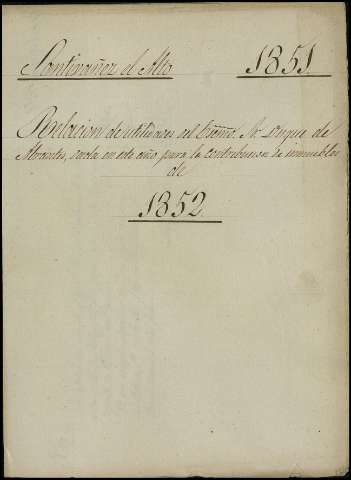 Santivañez el Alto 1851.
Relacion de utilidades del Excmo. Sr. Duque de
Abrantes, dada en este año para la contribucion de inmuebles
de
1852.